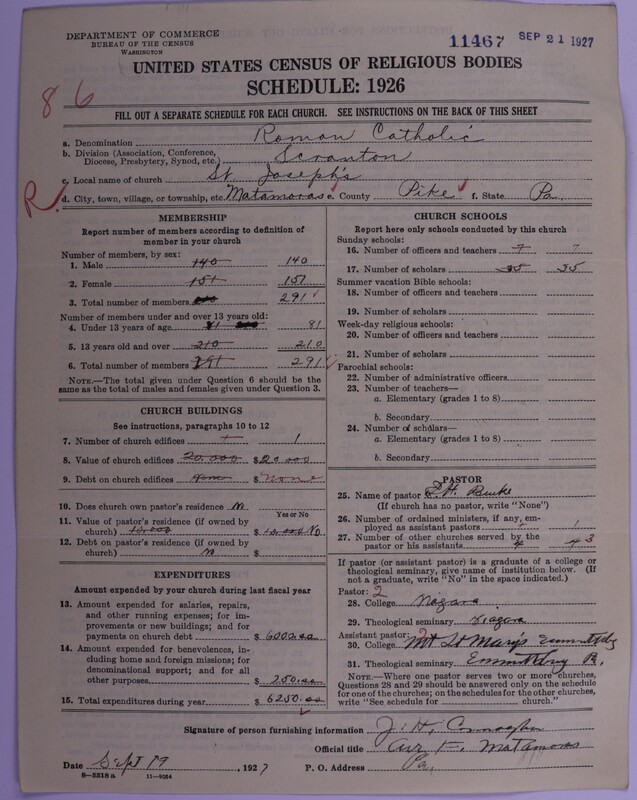 DEPARTMENT OF COMMERCE
BUREAU OF THE CENSUS
WASHINGTON
11467 SEP 21 1927
UNITED STATES CENSUS OF RELIGIOUS BODIES
SCHEDULE: 1926
86
FILL OUT A SEPARATE SCHEDULE FOR EACH CHURCH. SEE INSTRUCTIONS ON THE BACK OF THIS SHEET
a. Denomination Roman Catholic
b. Division (Association, Conference, Diocese, Presbytery, Synod, etc.) Scranton
c. Local name of church St Joseph's
R
d. City, town, village, or township, etc. Matamoras e. County Pike f. State Pa.
MEMBERSHIP
Report number of members according to definition of
member in your church
Number of members, by sex:
1. Male 140 140
2. Female 151 151
3. Total number of members 291
Number of members under and over 13 years old:
4. Under 13 years of age 81 81
5. 13 years old and over 210 210
6. Total number of members 291 291
NOTE.—The total given under Question 6 should be
same as the total of males and females given under Question 3.
CHURCH BUILDINGS
See instructions, paragraphs 10 to 12
7. Number of church edifices 1 1
8. Value of church edifices 20,000 $20000
9. Debt on church edifices None $ None
10. Does church own pastor's residence No
Yes or No
11. Value of pastor's residence (if owned by
church) 10,000 $ 10,000 No
12. Debt on pastor's residence (if owned by
church) No $
EXPENDITURES
Amount expended by your church during last fiscal year
13. Amount expended for salaries, repairs,
and other running expenses; for im-
provements or new buildings; and for
payments on church debt $ 6000.00
14. Amount expended for benevolences, in-
cluding home and foreign missions; for
denominational support; and for all
other purposes $ 250.00
15. Total expenditures during year $ 6250.00
CHURCH SCHOOLS
Report here only schools conducted by this church
Sunday schools:
16. Number of officers and teachers 7 7
17. Number of scholars 35 35
Summer vacation Bible schools:
18. Number of officers and teachers
19. Number of scholars
Week-day religious schools:
20. Number of officers and teachers
21. Number of scholars
Parochial schools:
22. Number of administrative officers
23. Number of teachers—
a. Elementary (grades 1 to 8)
b. Secondary
24. Number of scholars—
a. Elementary (grades 1 to 8)
b. Secondary
PASTOR
25. Name of pastor H. Burke
(If church has no pastor, write "None")
26. Number of ordained ministers, if any, em-
ployed as assistant pastors 1 1
27. Number of other churches served by the
pastor or his assistants 4 4 3
If pastor (or assistant pastor) is a graduate of a college or
theological seminary, give name of institution below. (If
not a graduate, write "No" in the space indicated.)
Pastor: 2
28. College Niagara
29. Theological seminary Niagara
Assistant pastor: 2
30. College Mt St Marys Emmitsburg
31. Theological seminary Emmitsburg
NOTE.—Where one pastor serves two or more churches,
Questions 28 and 29 should be answered only on the schedule
for one of the churches; on the schedules for the other churches,
write "See schedule for church.")
Signature of person furnishing information J. H.
Official title Matamoras
Date Sept 19, 1927 P. O. Address Pa.
8—5318a 11—9264